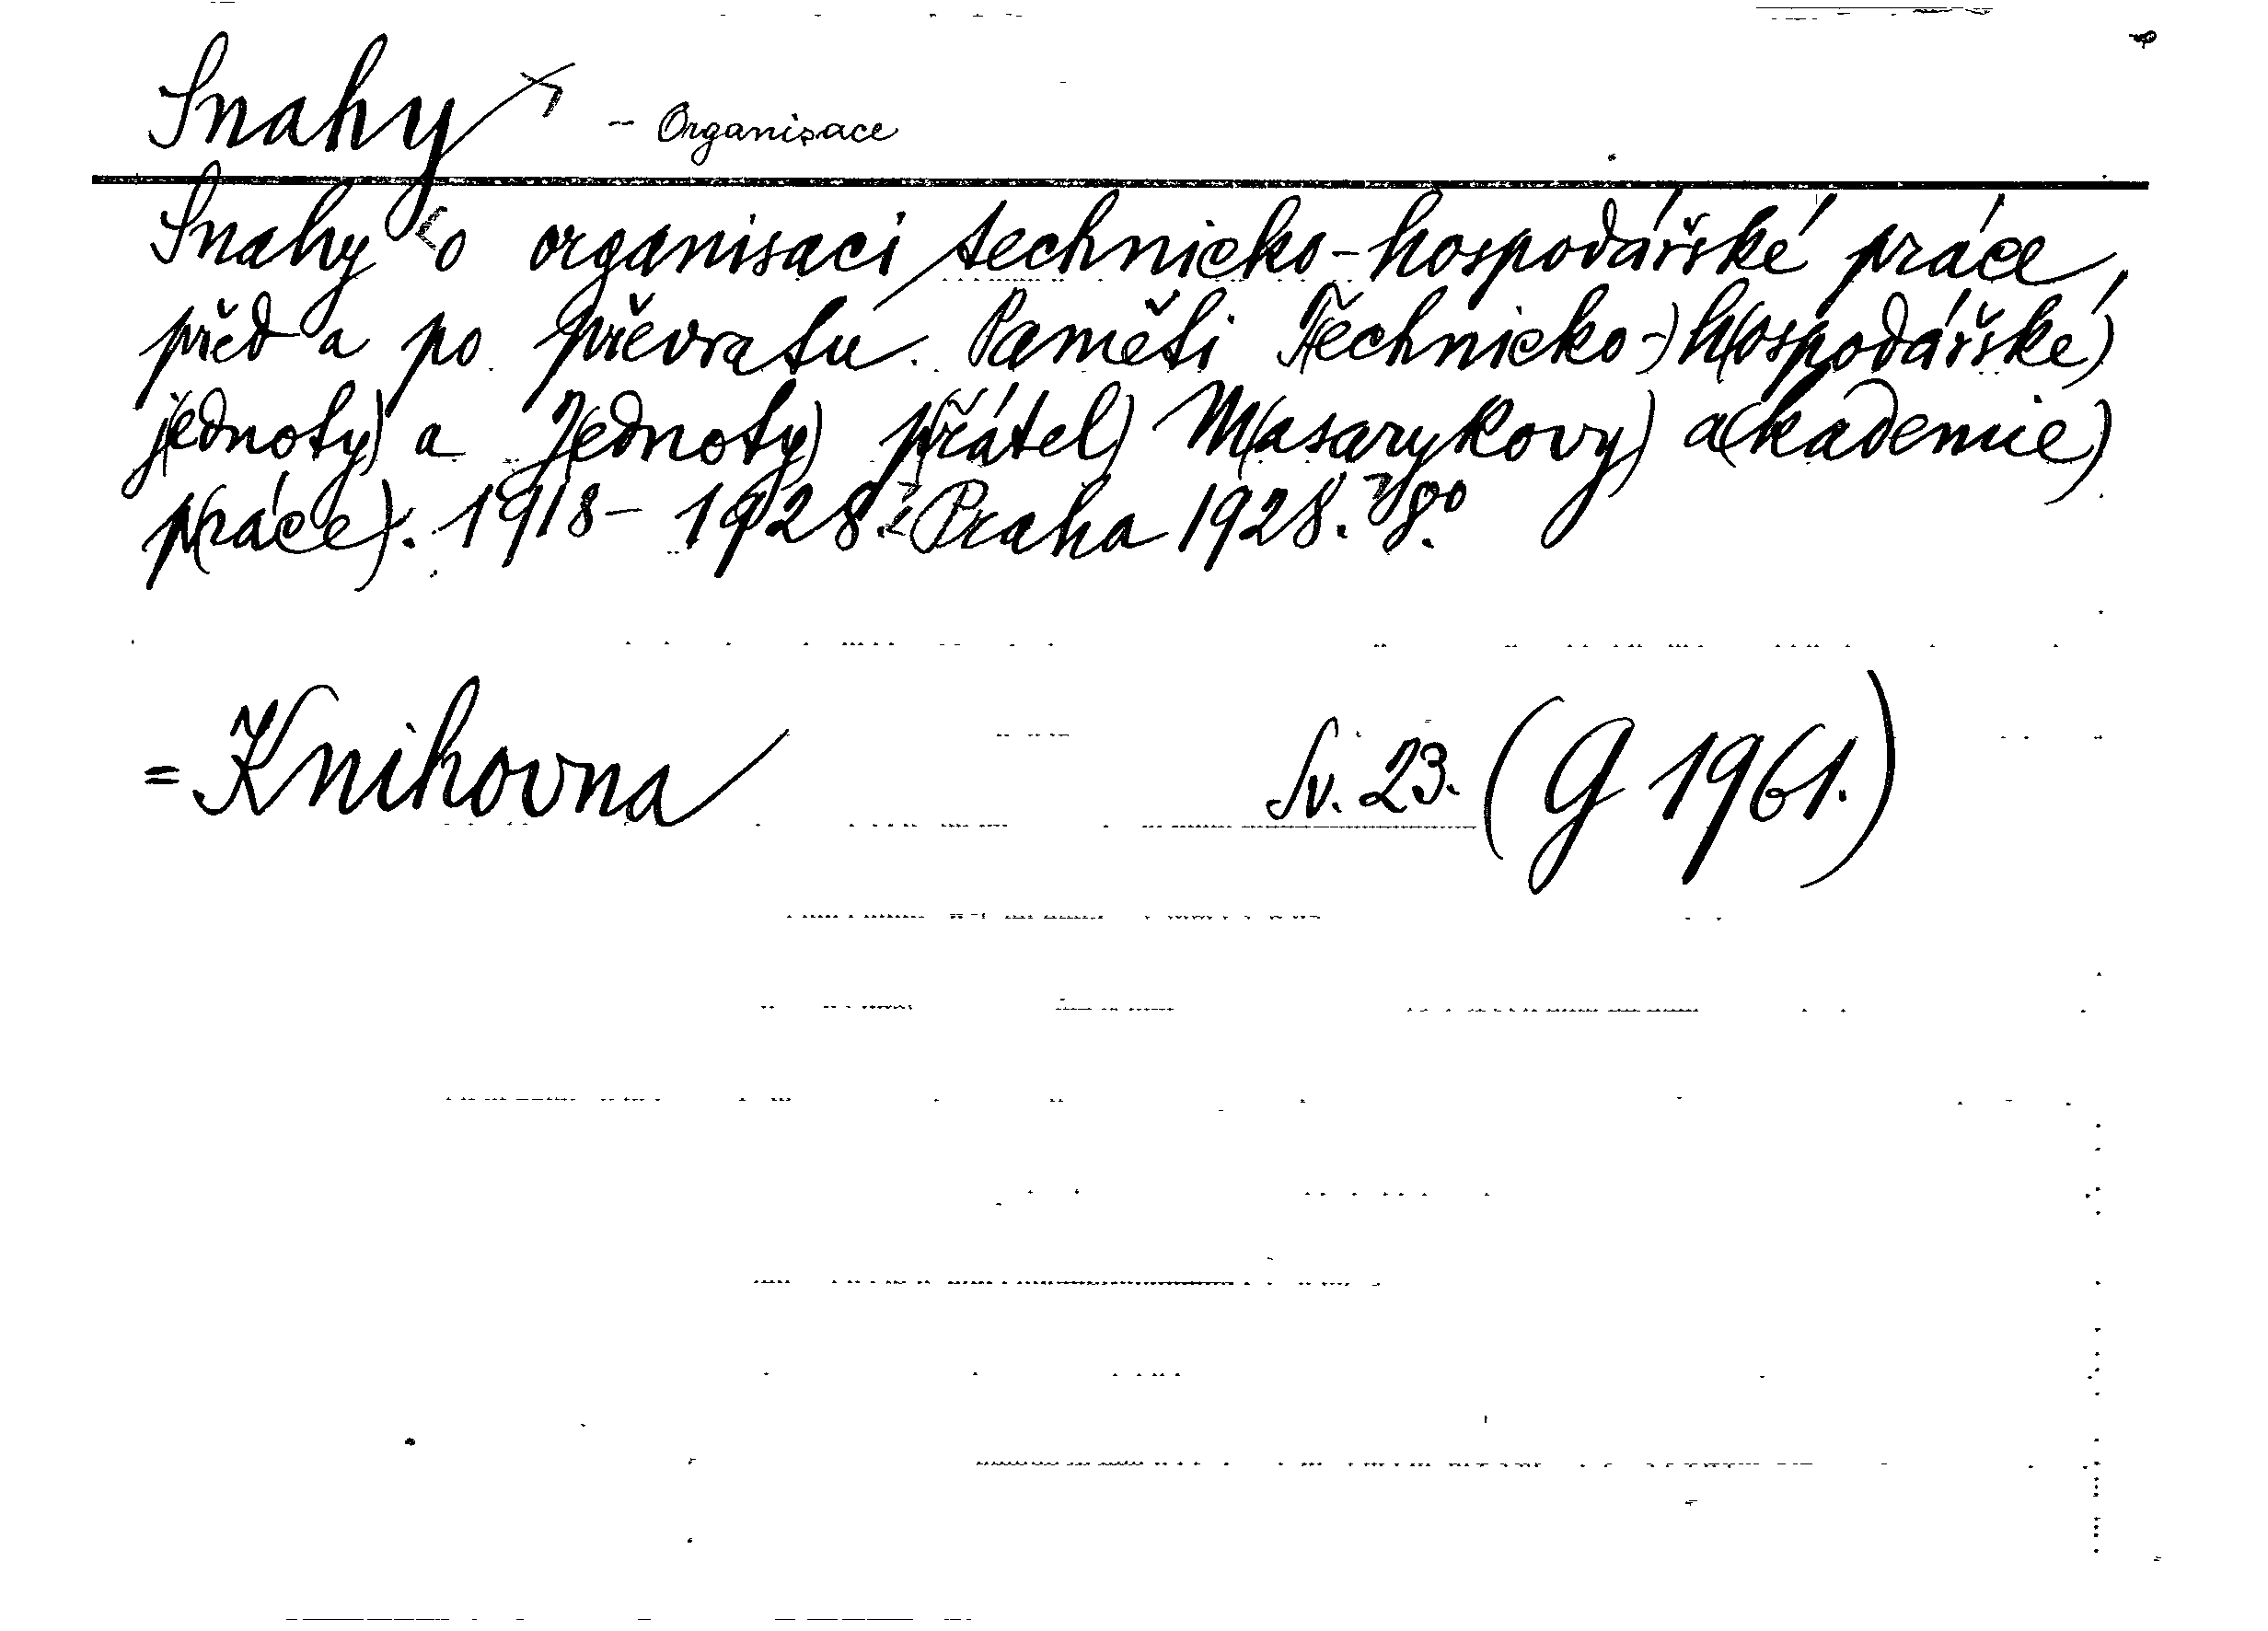 Snahy - Organisace
Snahy o organisaci technicko-hospodářské práce
před a po převratu. Paměti T(echnicko-)h(ospodářské)
j(ednoty) a J(ednoty) p(řátel) M(asarykovy) a(kademie)
p(ráce). 1918-1928. Praha 1928. 8°.
= Knihovna Sv. 23. (G 1961.)